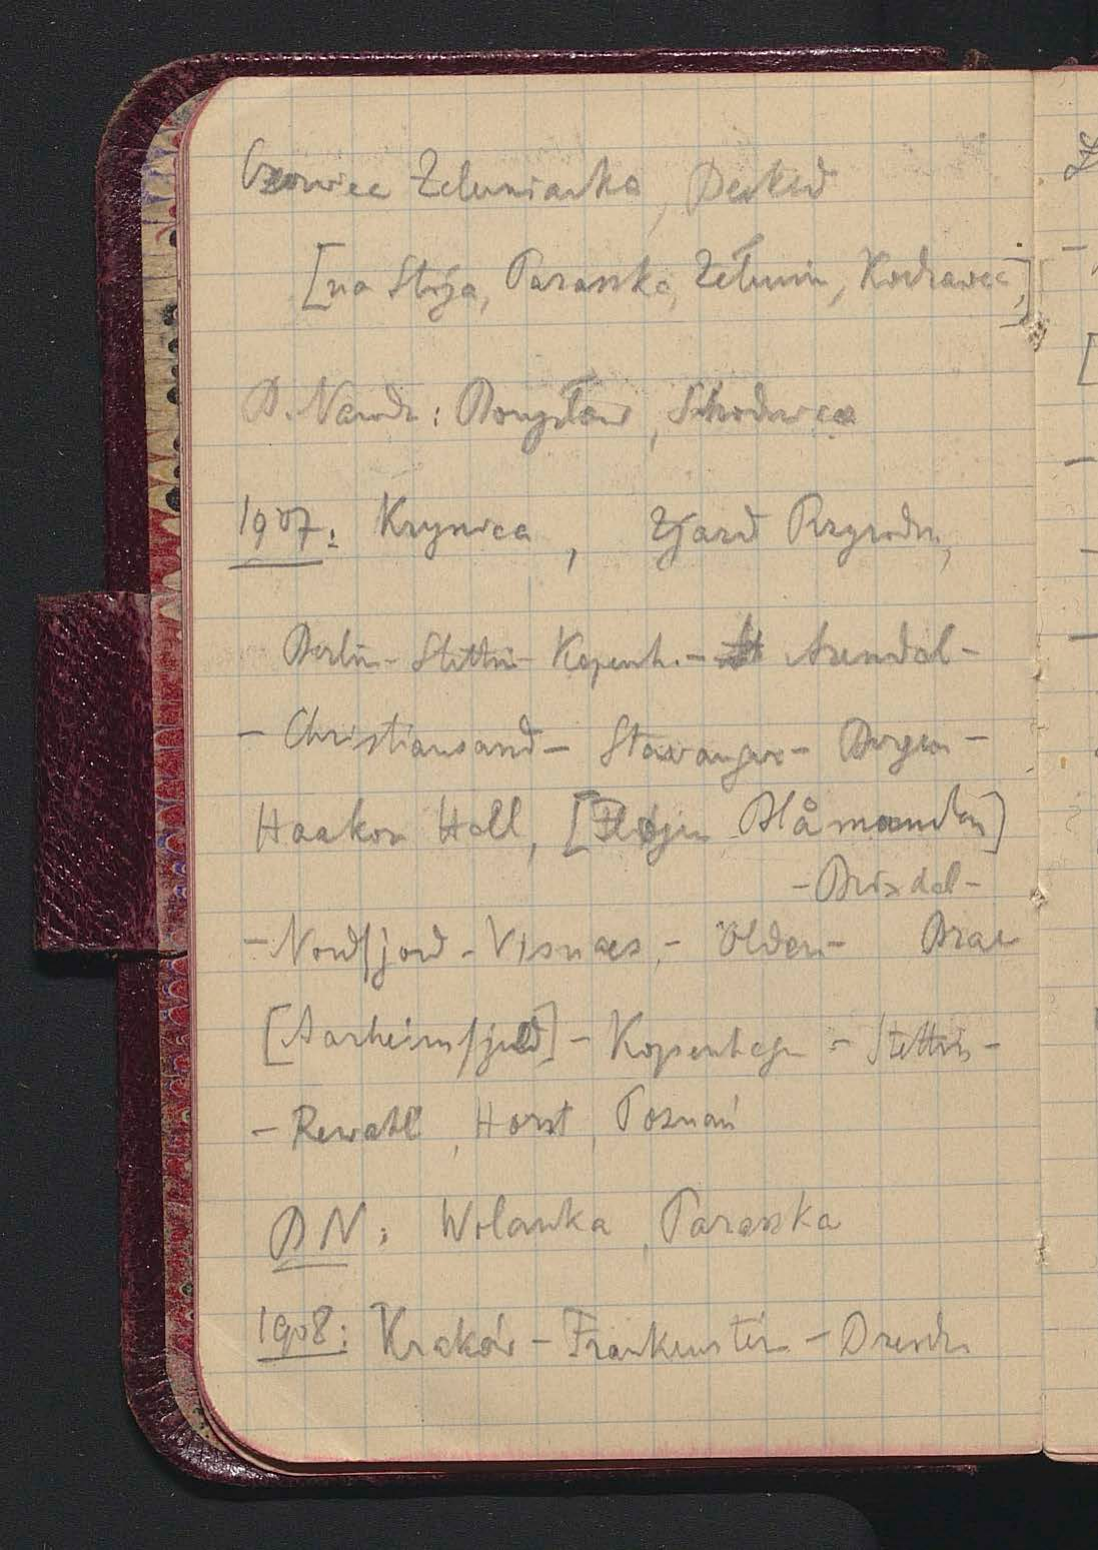 Czerwiec Zełemianka, Beskid
[na Stryja, Paraszka, Zełemin,
B. Narodz: Borysław, Schodnica
1907: Krynica, Zjazd Przyrodn,
Berlin - Stettin - Kopenh. - Arendal -
- Christiansand - Stavanger - Bergen -
Haakon Hall, [Fløjen Blåmanden]
- Brixdal -
- Nordfjord - Visnaes, - Olden - Brae
[Aarheimsfjeld] - Kopenhagen - Stettin -
- Rewahl, Horst, Poznań
BN: Wolanka, Paraszka
1908: Kraków - Frankenstein - Dresden